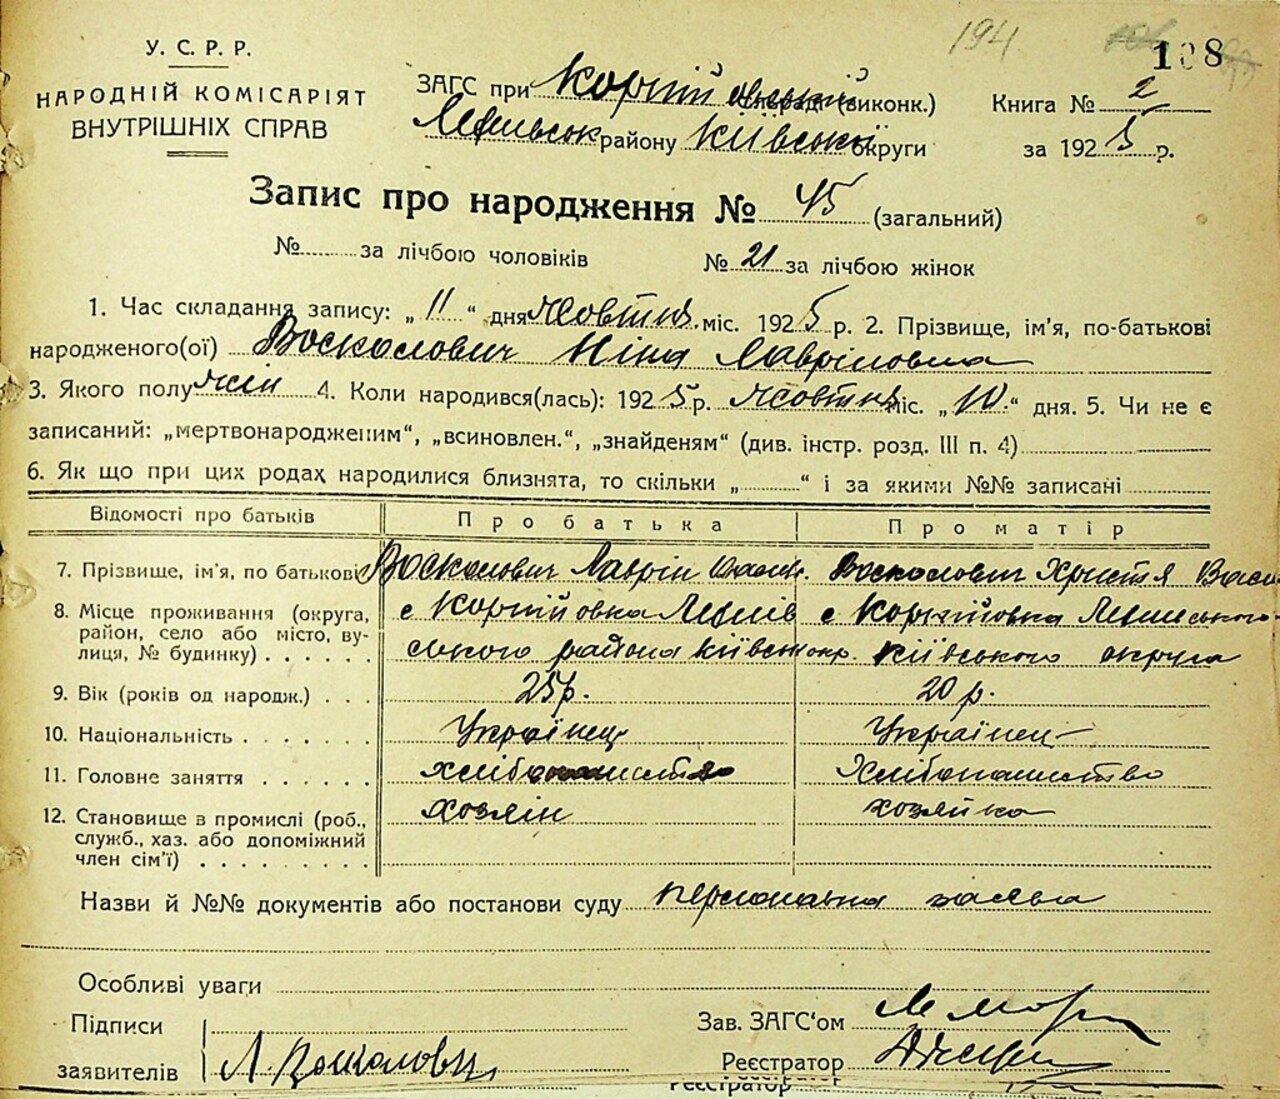 194
108
У. С. Р. Р.
НАРОДНІЙ КОМІСАРІЯТ
ВНУТРІШНІХ СПРАВ
ЗАГС при Корній (виконк.)
району Київської округи
Книга № 2
за 1925 р.
Запис про народження № 45 (загальний)
№ за лічбою чоловіків № 21 за лічбою жінок
1. Час складання запису: „ 11 “ дня Жовтня міс. 1925 р. 2. Прізвище, ім’я, по-батькові
народженого(ої) Восколович Ніна Лавріновна
3. Якого полу жін 4. Коли народився(лась): 1925 р. Жовтня міс. „ 10 “ дня. 5. Чи не є
записаний: „мертвонародженим“, „всиновлен.“, „знайденям“ (див. інстр. розд. III п. 4)
6. Як що при цих родах народилися близнята, то скільки „ “ і за якими №№ записані
Відомості про батьків Про батька Про матір
7. Прізвище, ім’я, по батькові Восколович Лаврін Восколович Христя Васи
8. Місце проживання (округа, район, село або місто, вулиця, № будинку) с Корнійовка с Корнійовка
района Київськ окр. Київського округа
9. Вік (років од народж.) 25 р. 20 р.
10. Національність Українець Українец
11. Головне заняття Хлібопашество
12. Становище в промислі (роб., хозяін хозяйка
служб., хаз. або допоміжний
член сім’ї)
Назви й №№ документів або постанови суду персональна заява
Особливі уваги
Підписи
заявителів Л. Восколович
Зав. ЗАГС‘ом
Реєстратор
Реєстратор